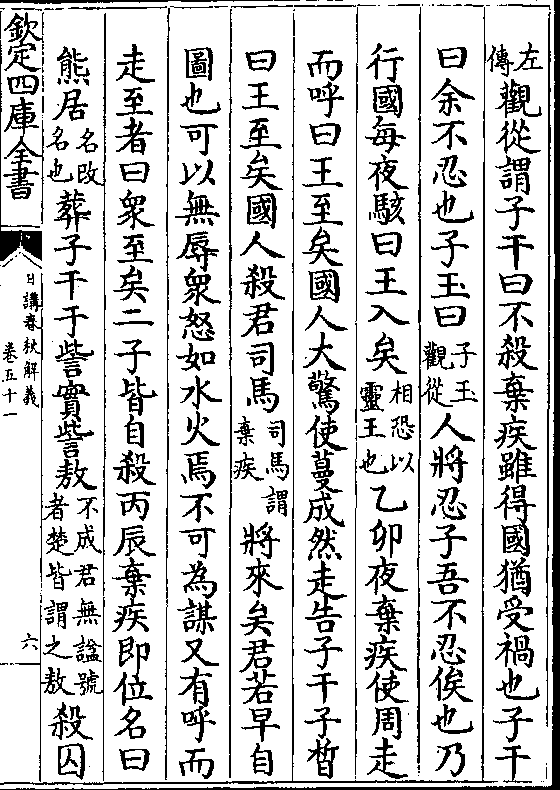 左傳觀從謂子干曰不殺棄疾雖得國猶受禍也子干
曰余不忍也子玉曰子玉觀從人將忍子吾不忍俟也乃
行國每夜駭曰王入矣相恐以靈王也乙卯夜棄疾使周走
而呼曰王至矣國人大驚使蔓成然走告子干子晳
曰王至矣國人殺君司馬司馬謂棄疾將來矣君若早自
圖也可以無辱衆怒如水火焉不可為謀又有呼而
走至者曰衆至矣二子皆自殺丙辰棄疾即位名曰
熊居名改名也葬子干于訾實訾敖不成君無諡號者楚皆謂之敖殺囚
欽定四庫全書
日講春秋解義
卷五十一
六